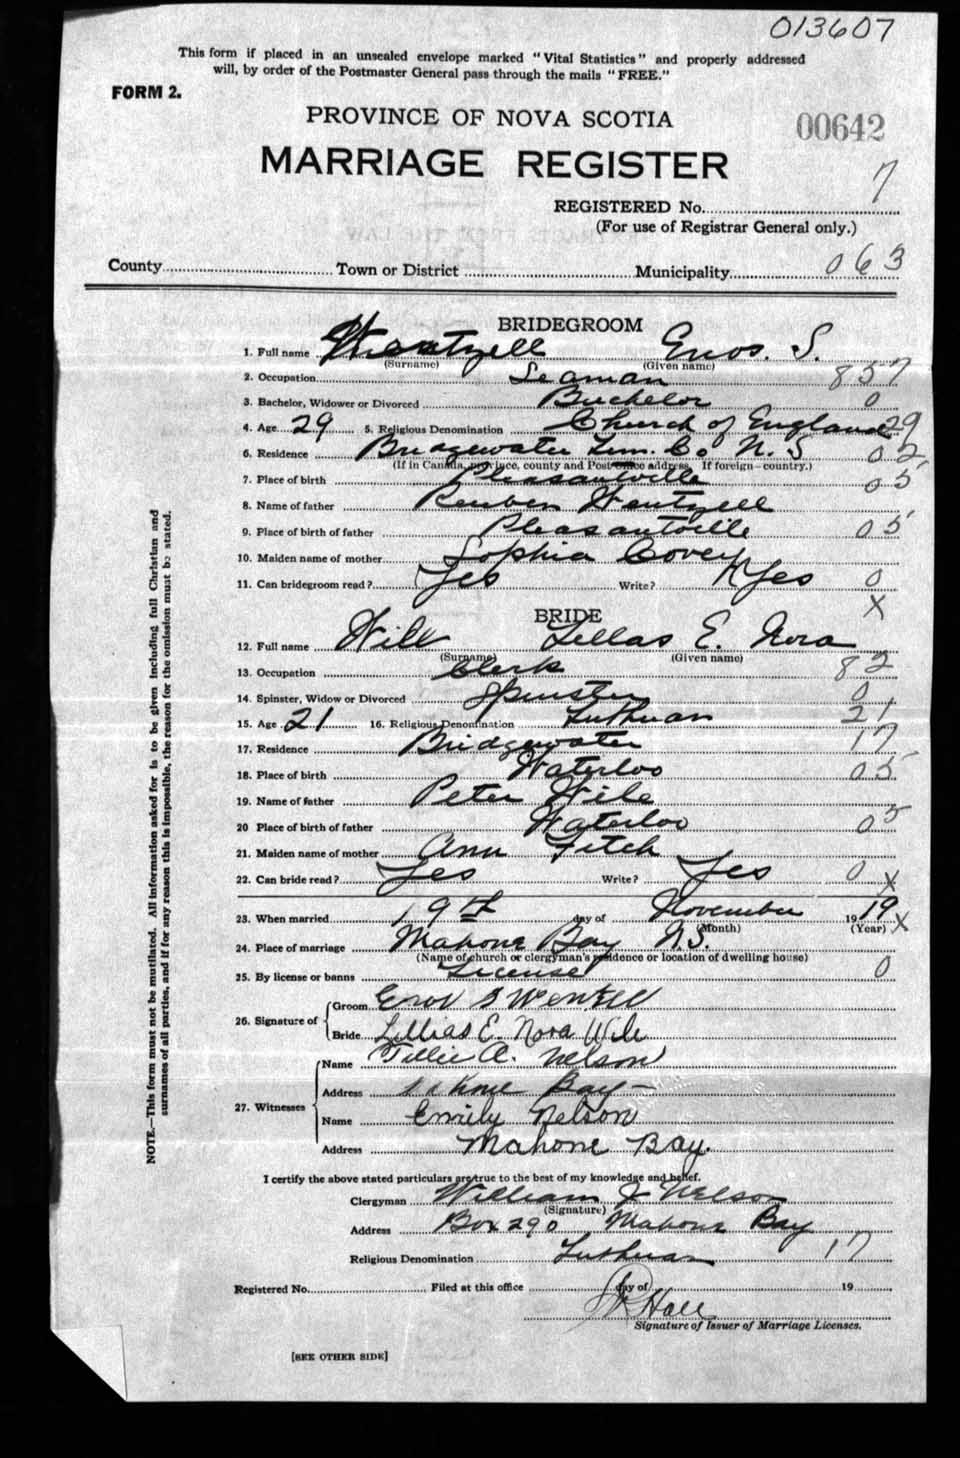 013607
This form if placed in an unsealed envelope marked "Vital Statistics" and properly addressed
will, by order of the Postmaster General pass through the mails "FREE."
FORM 2.
PROVINCE OF NOVA SCOTIA
00642
MARRIAGE REGISTER
7
REGISTERED No.
(For use of Registrar General only.)
County Town or District Municipality 063
BRIDEGROOM
1. Full name Wentzell Enos. S.
(Surname) (Given name)
2. Occupation Seaman 857
3. Bachelor, Widower or Divorced Bachelor 0
4. Age 29 5. Religious Denomination Church of England 29
6. Residence Bridgewater Lun. Co N. S 02
(If in Canada, province, county and Post-office address. If foreign—country.)
7. Place of birth Pleasantville 05
8. Name of father Reuben Wentzell
9. Place of birth of father Pleasantville 05
10. Maiden name of mother Sophia Covey
11. Can bridegroom read? Yes Write? Yes 0
X
BRIDE
12. Full name Wile Lellas E. Nora
(Surname) (Given name)
13. Occupation Clerk 82
14. Spinster, Widow or Divorced Spinster 0
15. Age 21 16. Religious Denomination Lutheran 21
17. Residence Bridgewater 17
18. Place of birth Waterloo 05
19. Name of father Peter Wile
20 Place of birth of father Waterloo 05
21. Maiden name of mother Ann Fitch
22. Can bride read? Yes Write? Yes 0 X
23. When married 19th day of November 1919 X
(Month) (Year)
24. Place of marriage Mahone Bay N.S.
(Name of church or clergyman's residence or location of dwelling house)
25. By license or banns License 0
26. Signature of Groom Enos S Wentzell
Bride Lillias E. Nora Wile
27. Witnesses Name Tillie A. Nelson
Address Bay
Name Emily Nelson
Address Mahone Bay.
I certify the above stated particulars are true to the best of my knowledge and belief.
Clergyman William J Nelson
(Signature)
Address Box 290 Mahone Bay
Religious Denomination Lutheran 17
Registered No. Filed at this office day of 19
Hall
Signature of Issuer of Marriage Licenses.
[SEE OTHER SIDE]
NOTE.—This form must not be mutilated. All information asked for is to be given including full Christian and
surnames of all parties, and if for any reason this is impossible, the reason for the omission must be stated.